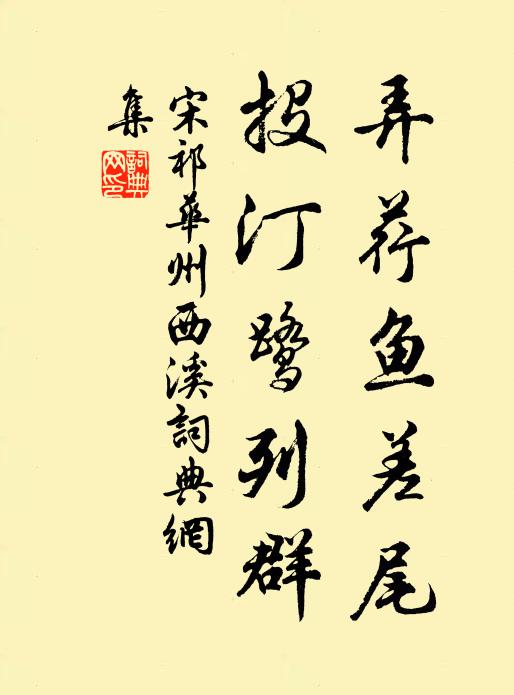 弄荇鱼差尾
投汀鹭列群
宋祁華州西溪詞典網
集
詞典
网印